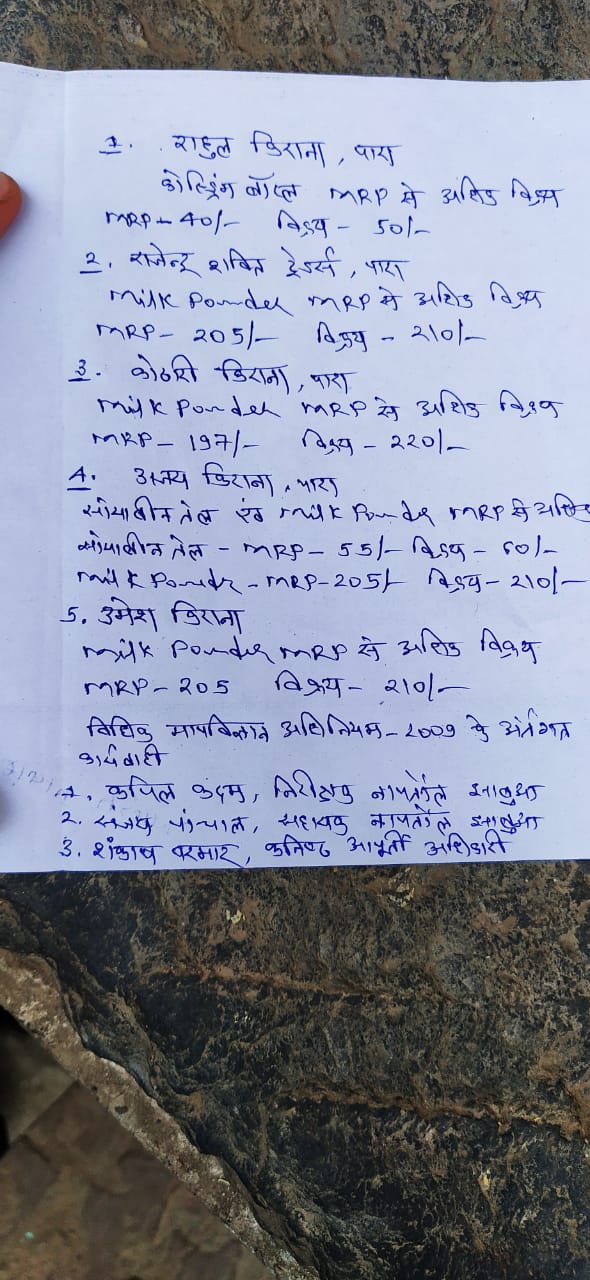 1. राहुल किराना, पारा
कोल्ड्रिंग बॉटल MRP से अधिक विक्रय
MRP - 40/- विक्रय - 50/-
2. राजेन्द्र शक्ति ट्रेडर्स, पारा
milk Powder MRP से अधिक विक्रय
MRP - 205/- विक्रय - 210/-
3. कोठारी किराना, पारा
milk Powder MRP से अधिक विक्रय
MRP - 197/- विक्रय - 220/-
4. अजय किराना, पारा
सोयाबीन तेल एवं milk Powder MRP से अधिक
सोयाबीन तेल - MRP - 55/- विक्रय - 60/-
milk Powder - MRP - 205/- विक्रय - 210/-
5. उमेश किराना
milk Powder MRP से अधिक विक्रय
MRP - 205 विक्रय - 210/-
विधिक मापविज्ञान अधिनियम - 2009 के अंर्तगत
कार्यवाही
1. कपिल कदम, निरीक्षक नापतौल झाबुआ
2. संजय पांचाल, सहायक नापतौल झाबुआ
3. परमार, कनिष्ठ आपूर्ती अधिकारी